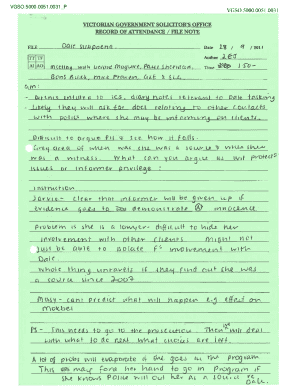 VGSO.5000.0051.0031_P
VGSO.5000.0051.0031
VICTORIAN GOVERNMENT SOLICITOR'S OFFICE
RECORD OF ATTENDANCE / FILE NOTE
FILE Dale subpoena Date 28 / 9 / 2011
Author
meeting with
Time 150-
Boris Buick
entitled to diary notes relevant to Dale tasking
likely they will ask for docs relating to other contacts
with police where she may be informing on clients
Difficult to argue PII & see how it falls.
Grey area of when was she was a source & when she
was a witness. What can you argue as will protect
issues or informer privilege:
Instruction
- clear that informer will be given up if
evidence goes to demonstrate innocence
Problem is she is a lawyer - difficult to hide her
involvement with other clients. Might not
just be able to isolate F's involvement with
Dale.
Whole thing unravels if they find out she was
a source since 2007
- can predict what will happen e.g. effect on
Mokbel
needs to go to the prosecution. Then will deal
with what to do next what choices are left.
A lot of probs will evaporate if she goes on the program
This may force her hand to go in Program if
she knows Police will out her as a source